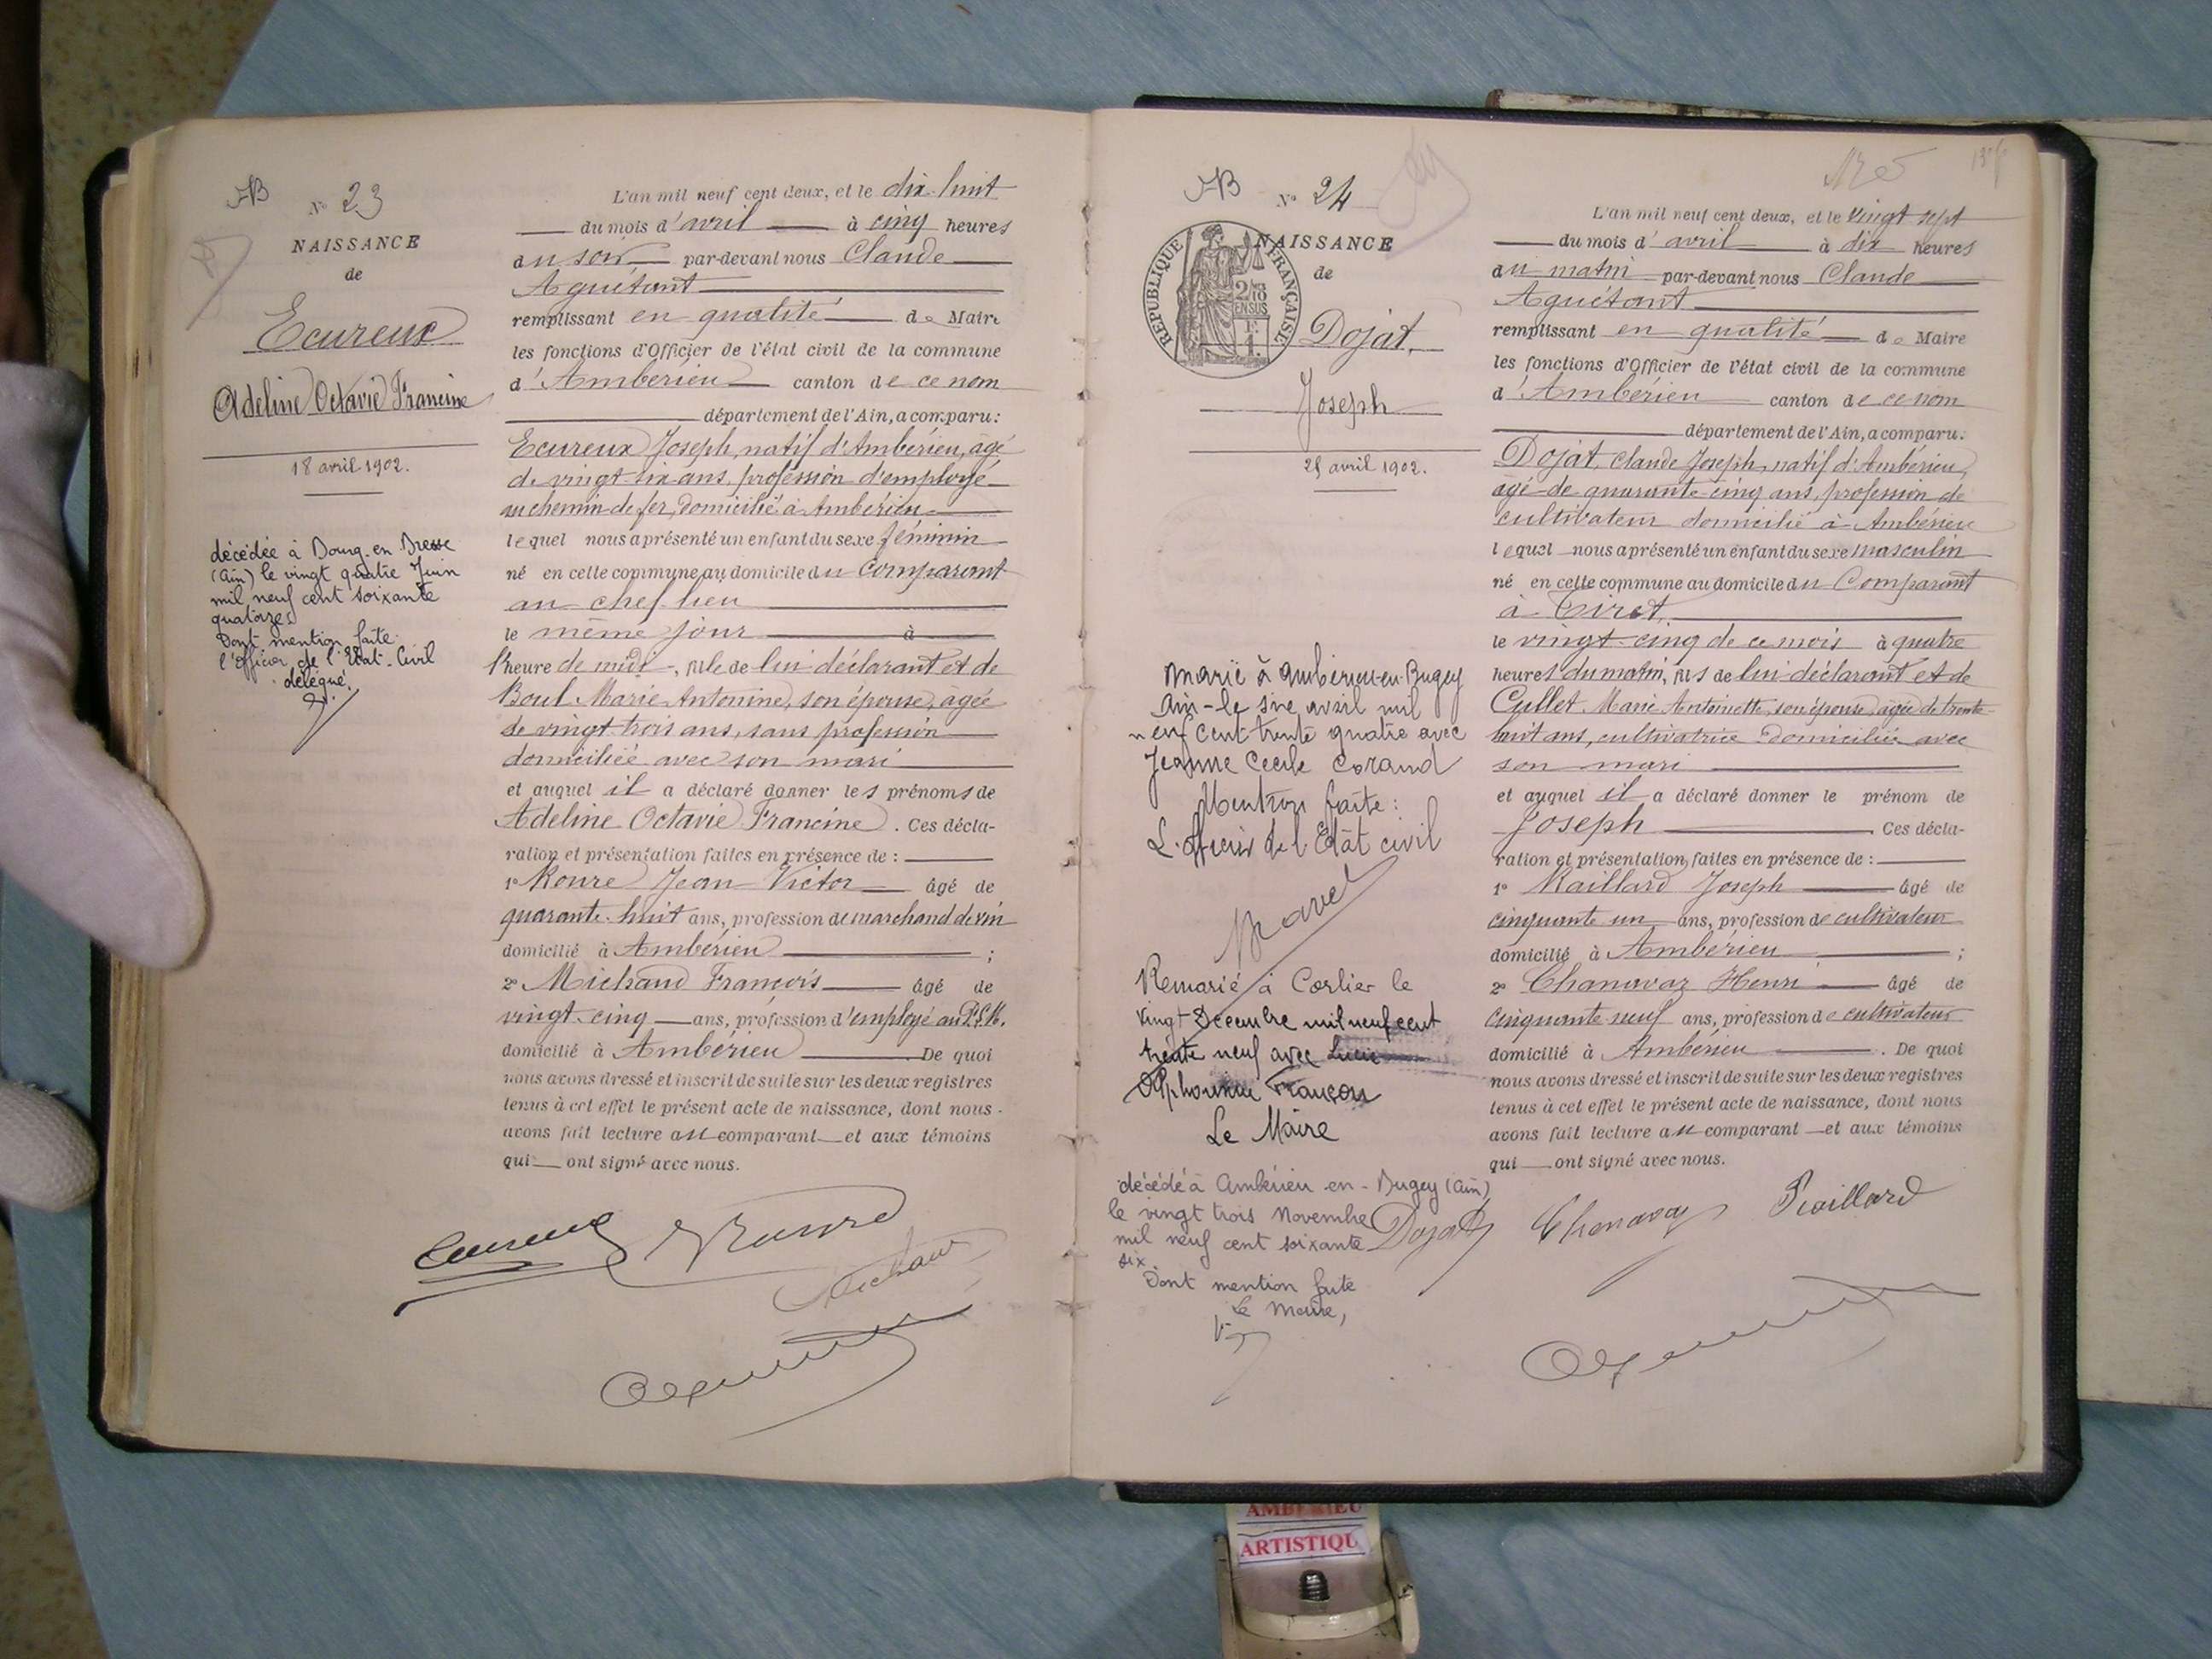 N° 23
NAISSANCE
de
Ecureux
Adeline Octavie Francine
18 avril 1902.
décédée à Bourg-en-Bresse
(Ain) le vingt quatre Juin
mil neuf cent soixante
quatorze.
Dont mention faite.
l'officier de l'Etat-Civil
délégué.
L'an mil neuf cent deux, et le dix-huit
du mois d'avril à cinq heures
du soir par-devant nous Claude
Aguétant
remplissant en qualité de Maire
les fonctions d'Officier de l'état civil de la commune
d'Ambérieu canton de ce nom
département de l'Ain, a comparu:
Ecureux Joseph, natif d'Ambérieu, âgé
de vingt-six ans, profession d'employé
au chemin de fer, domicilié à Ambérieu
lequel nous a présenté un enfant du sexe féminin
né en cette commune au domicile du Comparant
au chef-lieu
le même jour à
l'heure de midi, fille de lui déclarant et de
Boul Marie Antonine, son épouse, âgée
de vingt-trois ans, sans profession
domiciliée avec son mari
et auquel il a déclaré donner les prénoms de
Adeline Octavie Francine. Ces décla-
ration et présentation faites en présence de :
1° Roure Jean Victor âgé de
quarante-huit ans, profession de marchand de vin
domicilié à Ambérieu ;
2° Michaud François âgé de
vingt-cinq ans, profession d'employé au P.L.M.
domicilié à Ambérieu. De quoi
nous avons dressé et inscrit de suite sur les deux registres
tenus à cet effet le présent acte de naissance, dont nous
avons fait lecture au comparant et aux témoins
qui ont signé avec nous.
Ecureux Roure
Michaud
N° 24
REPUBLIQUE FRANÇAISE
2/10
EN SUS
NAISSANCE
de
Dojat
Joseph
25 avril 1902.
Marié à Ambérieu-en-Bugey
Ain - le six avril mil
neuf cent trente quatre avec
Jeanne Cecile Corand
Mention faite :
L'officier de l'Etat civil
Remarié à Corlier le
vingt Décembre mil neuf cent
trente neuf avec Lucie
Alphonsine Françon
Le Maire
décédé à Ambérieu-en-Bugey (Ain)
le vingt trois Novembre
mil neuf cent soixante
six.
Dont mention faite
Le Maire,
L'an mil neuf cent deux, et le vingt sept
du mois d'avril à dix heures
du matin par-devant nous Claude
Aguétant
remplissant en qualité de Maire
les fonctions d'Officier de l'état civil de la commune
d'Ambérieu canton de ce nom
département de l'Ain, a comparu.
Dojat, Claude Joseph, natif d'Ambérieu,
âgé de quarante-cinq ans, profession de
cultivateur domicilié à Ambérieu
lequel nous a présenté un enfant du sexe masculin
né en cette commune au domicile du Comparant
à Tiret,
le vingt-cinq de ce mois à quatre
heures du matin, fils de lui déclarant et de
Cullet Marie Antoinette, son épouse, âgée de trente-
huit ans, cultivatrice domiciliée avec
son mari
et auquel il a déclaré donner le prénom de
Joseph. Ces décla-
ration et présentation faites en présence de :
1° Raillard Joseph âgé de
cinquante un ans, profession de cultivateur
domicilié à Ambérieu ;
2° Chanavaz Henri âgé de
cinquante-neuf ans, profession de cultivateur
domicilié à Ambérieu. De quoi
nous avons dressé et inscrit de suite sur les deux registres
tenus à cet effet le présent acte de naissance, dont nous
avons fait lecture au comparant et aux témoins
qui ont signé avec nous.
Dojat Chanavaz Raillard
AMBERIEU
ARTISTIQU